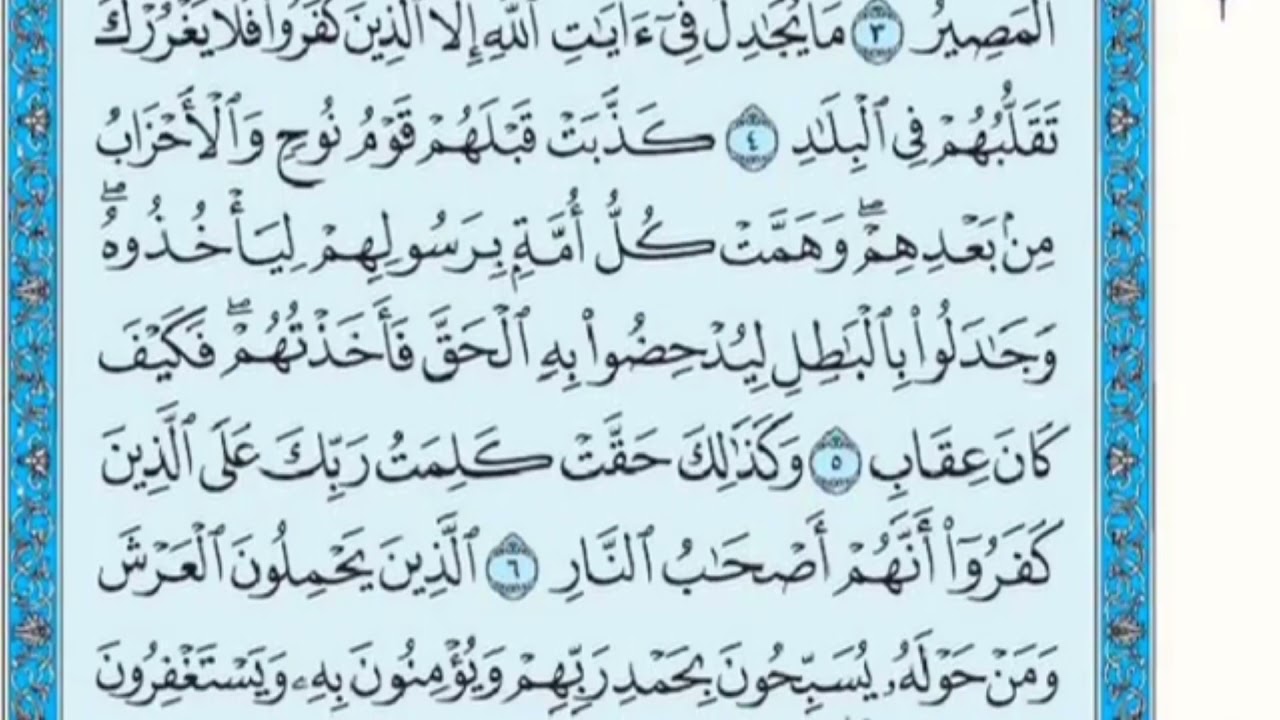 ٱلْمَصِيرُ ٣ مَا يُجَٰدِلُ فِىٓ ءَايَٰتِ ٱللَّهِ إِلَّا ٱلَّذِينَ كَفَرُوا۟ فَلَا يَغْرُرْكَ
تَقَلُّبُهُمْ فِى ٱلْبِلَٰدِ ٤ كَذَّبَتْ قَبْلَهُمْ قَوْمُ نُوحٍ وَٱلْأَحْزَابُ
مِنۢ بَعْدِهِمْ ۖ وَهَمَّتْ كُلُّ أُمَّةٍۭ بِرَسُولِهِمْ لِيَأْخُذُوهُ ۖ
وَجَٰدَلُوا۟ بِٱلْبَٰطِلِ لِيُدْحِضُوا۟ بِهِ ٱلْحَقَّ فَأَخَذْتُهُمْ ۖ فَكَيْفَ
كَانَ عِقَابِ ٥ وَكَذَٰلِكَ حَقَّتْ كَلِمَتُ رَبِّكَ عَلَى ٱلَّذِينَ
كَفَرُوٓا۟ أَنَّهُمْ أَصْحَٰبُ ٱلنَّارِ ٦ ٱلَّذِينَ يَحْمِلُونَ ٱلْعَرْشَ
وَمَنْ حَوْلَهُۥ يُسَبِّحُونَ بِحَمْدِ رَبِّهِمْ وَيُؤْمِنُونَ بِهِۦ وَيَسْتَغْفِرُونَ